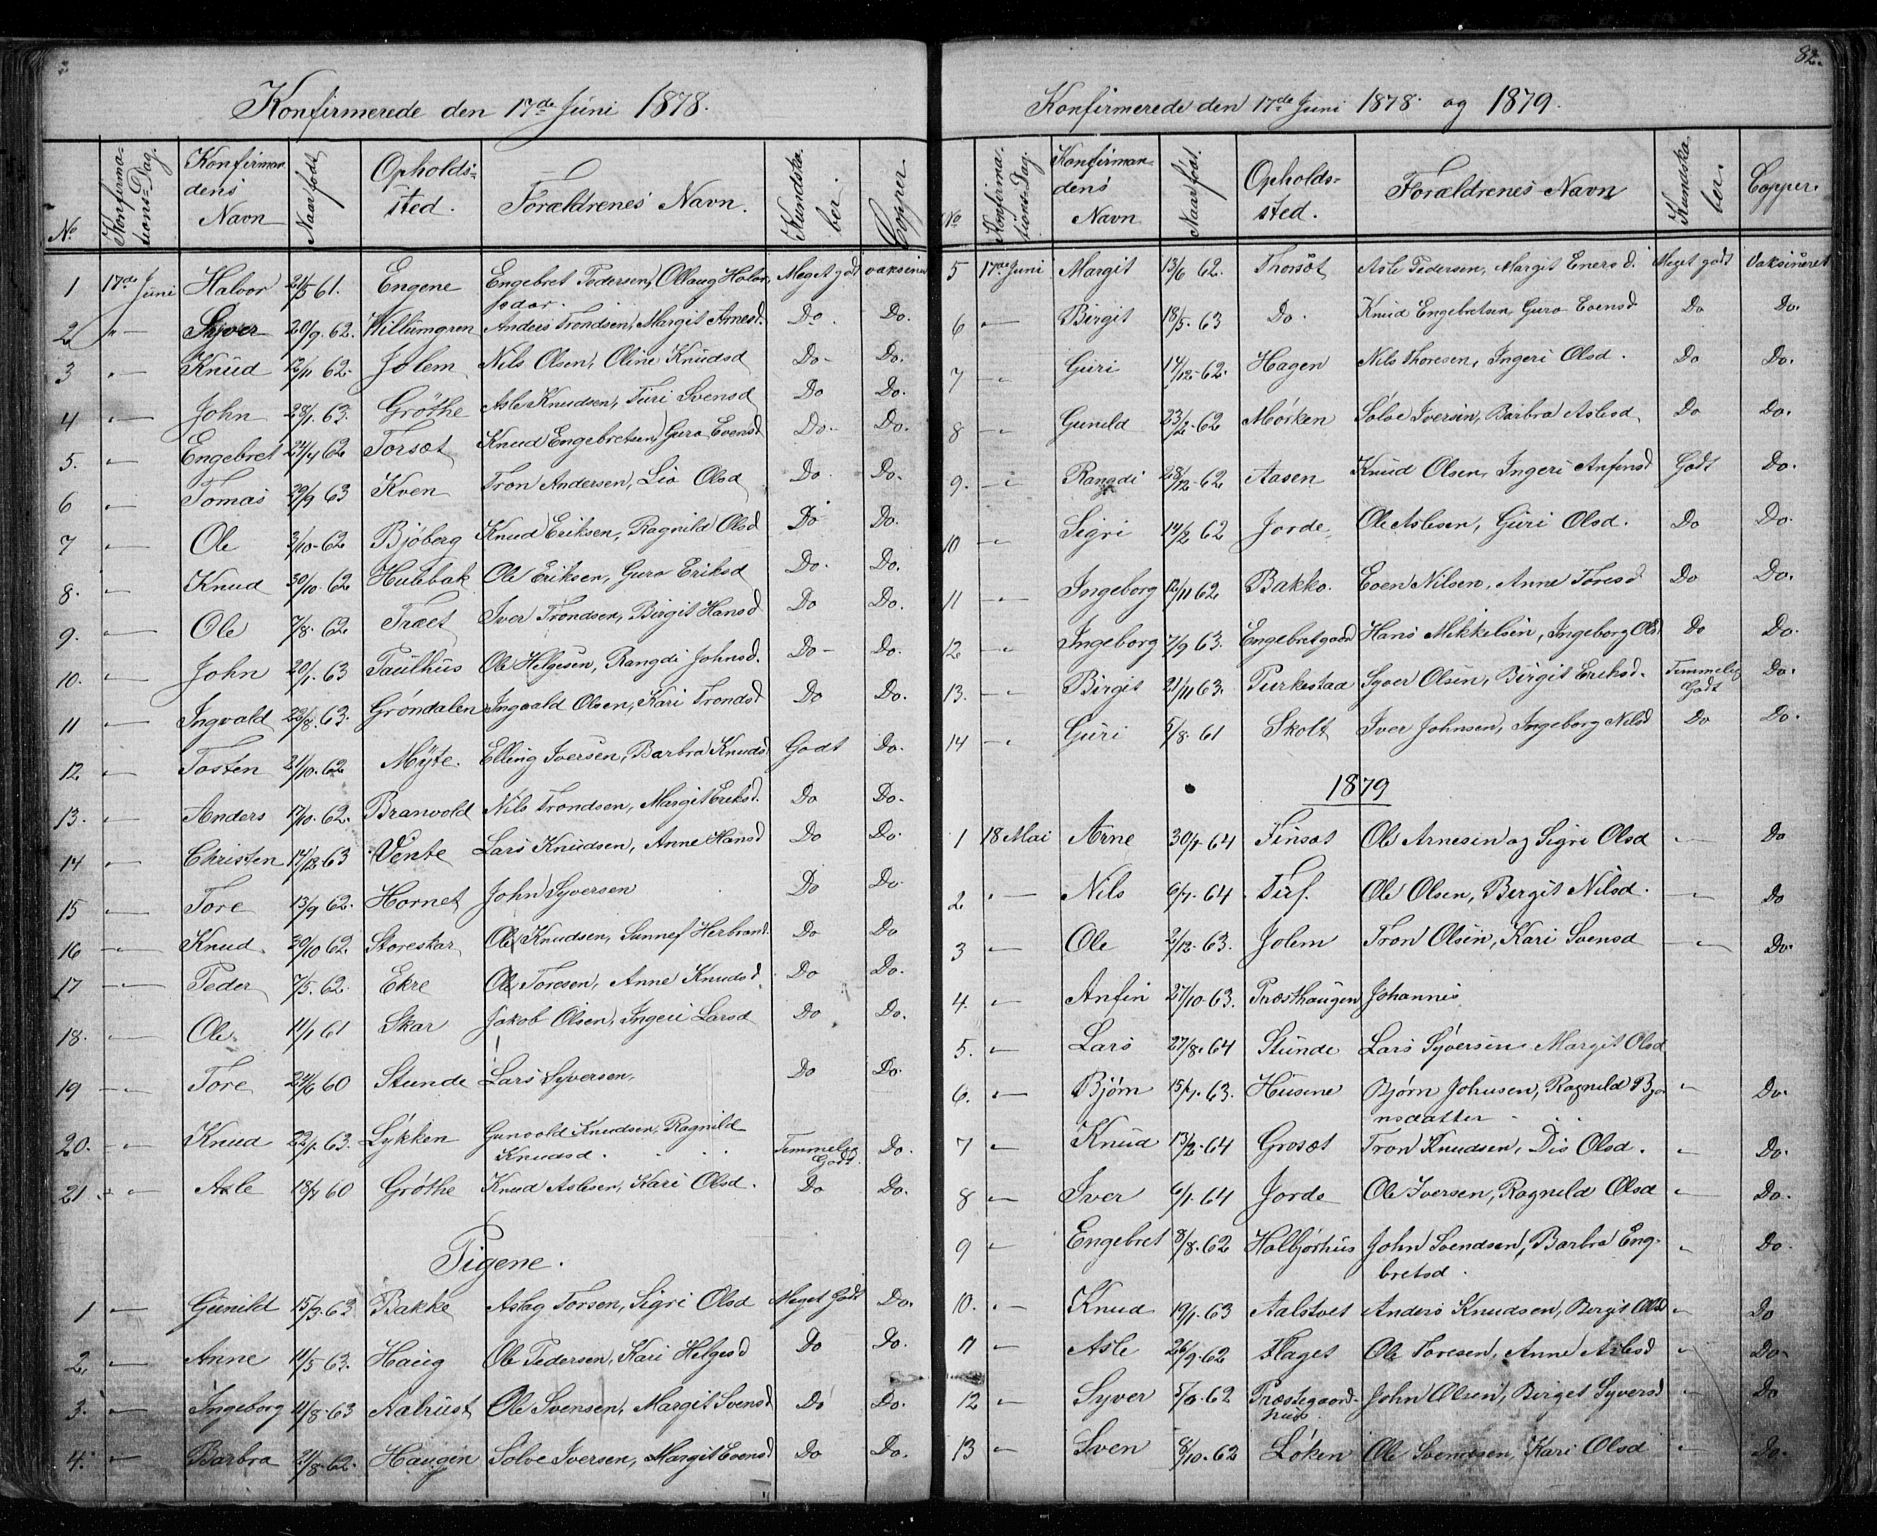 Konfirmerede den 17de Juni 1878.
No Konfirmations-Dag. Konfirmandens Navn Naar født Opholdssted. Forældrenes Navn. Kundskaber Copper.
1 17de Juni Halvor 21/5 61. Engene Engebret Pedersen, Ollaug Halvor Meget godt vaksineret
sdar.
2 " Syver 20/9. 62. Villumgren Anders Trondsen, Margit Arnesd. Do. Do.
3 " Knud 12/11 62. Jølem Nils Olsen, Oline Knudsd Do Do.
4 " John 28/1. 63. Grøthe Asle Knudsen, Turi Svensd Do Do.
5. " Engebret 24/4 62 Torsæt Knud Engebretsen, Guro Evensd Do Do.
6 " Tomas 29/9 63 Kven Tron Andersen, Liv Olsd Do. Do.
7 " Ole 3/10. 62 Bjøberg Knud Eriksen, Ragnild Olsd Do Do.
8. " Knud 30/10. 62 Hulebak Ole Eriksen, Guro Eriksd Do. Do.
9. " Ole 7/8. 62 Træet Iver Trondsen, Birgit Hansd Do Do.
10. " John 20/1. 63 Taulhus Ole Helgesen, Rangdi Johnsd. Do Do.
11 " Ingvald 22/8. 63. Grøndalen Ingvald Olsen, Kari Trondsd Do Do.
12 " Tosten 21/10. 62 Myte. Elling Iversen, Barbra Knudsd Godt Do.
13. " Anders 17/10. 62. Branvold Nils Trondsen, Margit Eriksd. Do Do.
14 " Christen 14/12. 63 Vente Lars Knudsen, Anne Hansd Do Do.
15 " Tore 13/9 62. Hornet John Syversen Do Do.
16 " Knud 30/10 62. Storeskar Ole Knudsen, Sunnef Herbrand. Do Do
17 " Peder 7/5. 62. Ekre Ole Toresen, Anne Knudsd. Do Do.
18. " Ole 11/1 61 Skar Jakob Olsen, Ingeri Larsd Do Do.
19 " Tore 24/6 60 Stunde Lars Syversen, Do Do.
20. " Knud 22/1. 63. Lykken Gunvold Knudsen, Ragnild
Knudsd. Temmelig Godt. Do.
21 " Asle 18/7 60 Grøthe Knud Aslesen, Kari Olsd. Do Do.
Pigene.
1 " Gunild 15/3. 63 Bakke Aslag Torsen, Sigri Olsd Meget Godt Do.
2. " Anne 11/5 63. Haug Ole Pedersen, Kari Helgesd Do Do.
3. " Ingeborg 11/8. 63 Aalrust Ole Svensen, Margit Svensd Do Do.
4. " Barbra 21/8. 62. Haugen Solve Iversen, Margit Evensd Do Do.
82.
Konfirmerede den 17de Juni 1878. og 1879.
No Konfirmations-Dag. Konfirmandens Navn Naar født. Opholdssted. Forældrenes Navn Kundskaber. Copper.
5 17de Juni Margit 13/6 62. Thorsøt Asle Pedersen, Margit Enersd. Meget godt Vaksineret
6 " Birgit 18/5. 63 Do. Knud Engebretsen, Guro Evensd Do Do.
7 " Guri 14/12. 62. Hagen Nils Thoresen, Ingeri Olsd. Do Do.
8 " Gunild 23/2. 62 Mørken Sølve Iversen, Barbra Aslesd Do Do.
9. " Rangdi 28/12. 62 Aasen Knud Olsen, Ingeri Anfinsd Godt Do.
10 " Sigri 14/2 62 Jorde Ole Aslesen, Guri Olsd. Do Do.
11 " Ingeborg 12/11 62 Bakko. Even Nilsen, Anne Toresd Do Do.
12 " Ingeborg 7/9 63. Engebretgaard Hans Mikkelsen, Ingeborg Olsd Do Do.
13. " Birgit 21/11 63. Turkestaa Syver Olsen, Birgit Eriksd. Temmelig Godt Do.
14 " Guri 5/8. 61 Skolt Iver Johnsen, Ingeborg Nilsd Do Do.
1879
1 18 Mai Arne 30/1. 64 Finsæt Ole Arnesen og Sigri Olsd " Do
2 " Nils 6/1. 64 Turf. Ole Olsen, Birgit Nilsd. " Do
3 " Ole 2/12. 63. Jolem Tron Olsen, Kari Svensd " Do.
4. " Anfin 27/10. 63. Præsthaugen Johannis
5. " Lars 27/8. 64 Stunde Lars Syversen Margit Olsd
6. " Bjørn 15/7. 63. Husene Bjørn Johnsen, Ragnild Bjø " Do.
nsdatter
7 " Knud 13/2. 64 Grosæt Tron Knudsen, Dis Olsd. " Do.
8 " Iver 6/1. 64 Jorde Ole Iversen, Ragnild Olsd " Do.
9 " Engebret 8/8. 62 Halbjørhus John Svendsen, Barbra Eng- " Do.
bretsd.
10. " Knud 19/1. 63 Aalstvet Anders Knudsen, Birgit Olsd " Do
11 " Asle 26/9. 62 Flaget Ole Toresen, Anne Aslesd " Do.
12 " Syver 62 Præstegaard- John Olsen, Birget Syversd " Do
hus.
13 " Sven 8/10. 62 Løken Ole Svendsen, Kari Olsd " Do.